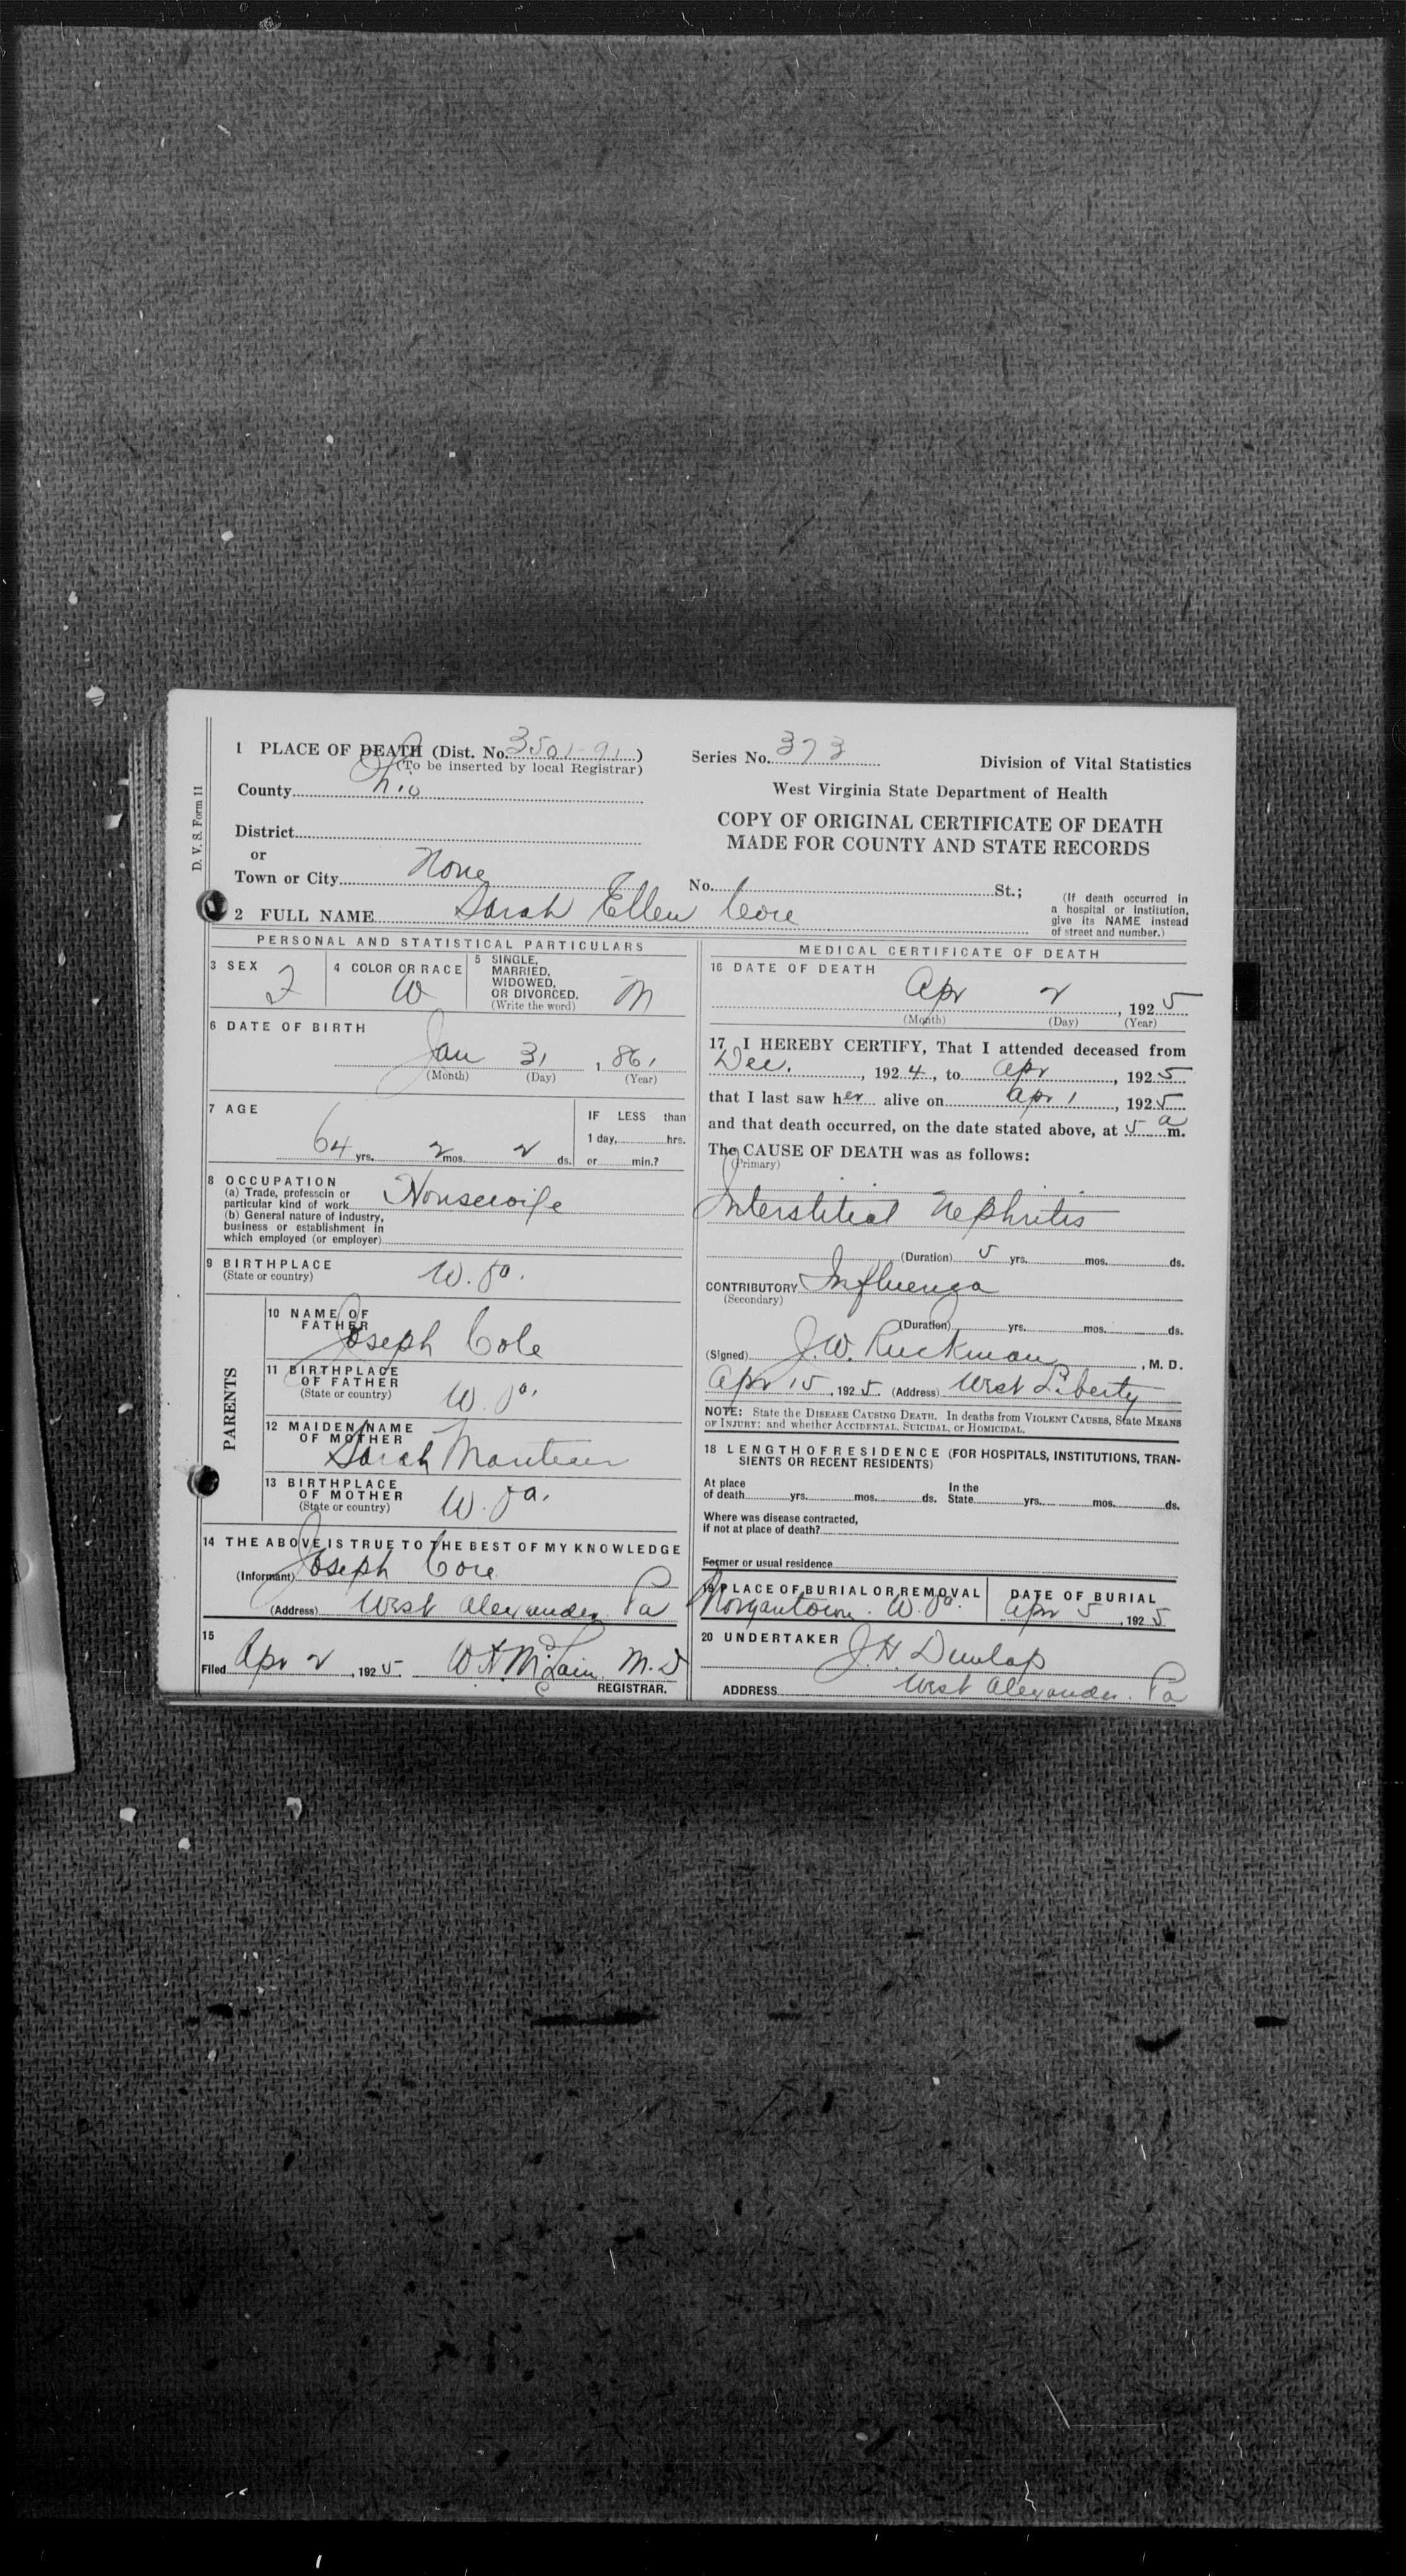 D. V. S. Form 11
1 PLACE OF DEATH (Dist. No. 3501-91)
(To be inserted by local Registrar)
County Ohio
District
or
Town or City None
Series No. 373
Division of Vital Statistics
West Virginia State Department of Health
COPY OF ORIGINAL CERTIFICATE OF DEATH
MADE FOR COUNTY AND STATE RECORDS
No. St.;
(If death occurred in
a hospital or institution,
give its NAME instead
of street and number.)
2 FULL NAME Sarah Ellen Core
PERSONAL AND STATISTICAL PARTICULARS
3 SEX F
4 COLOR OR RACE W
5 SINGLE,
MARRIED,
WIDOWED,
OR DIVORCED.
(Write the word) M
6 DATE OF BIRTH
Jan 31, 1861
(Month) (Day) (Year)
7 AGE
64 yrs. 2 mos. 2 ds.
IF LESS than
1 day, hrs.
or min.?
8 OCCUPATION
(a) Trade, professoin or
particular kind of work Housewife
(b) General nature of industry,
business or establishment in
which employed (or employer)
9 BIRTHPLACE
(State or country) W. Va.
PARENTS
10 NAME OF
FATHER Joseph Cole
11 BIRTHPLACE
OF FATHER
(State or country) W. Va.
12 MAIDEN NAME
OF MOTHER
Sarah
13 BIRTHPLACE
OF MOTHER
(State or country) W. Va.
14 THE ABOVE IS TRUE TO THE BEST OF MY KNOWLEDGE
(Informant) Joseph Core
(Address) West Alexander Pa
15
Filed Apr 2, 1925 W A McLain M.D
REGISTRAR.
MEDICAL CERTIFICATE OF DEATH
16 DATE OF DEATH
Apr 2, 1925
(Month) (Day) (Year)
17 I HEREBY CERTIFY, That I attended deceased from
Dec., 1924, to Apr, 1925
that I last saw her alive on Apr 1, 1925
and that death occurred, on the date stated above, at 5 a m.
The CAUSE OF DEATH was as follows:
(Primary)
Interstitial Nephritis
(Duration) 5 yrs. mos. ds.
CONTRIBUTORY Influenza
(Secondary)
(Duration) yrs. mos. ds.
(Signed) J.W. Ruckman, M. D.
Apr 15, 1925. (Address) West Liberty
NOTE: State the DISEASE CAUSING DEATH. In deaths from VIOLENT CAUSES, State MEANS
OF INJURY; and whether ACCIDENTAL, SUICIDAL, or HOMICIDAL.
18 LENGTH OF RESIDENCE (FOR HOSPITALS, INSTITUTIONS, TRAN-
SIENTS OR RECENT RESIDENTS)
At place
of death yrs. mos. ds. In the
State yrs. mos. ds.
Where was disease contracted,
if not at place of death?
Former or usual residence
19 PLACE OF BURIAL OR REMOVAL
Morgantown. W. Va.
DATE OF BURIAL
Apr 5, 1925
20 UNDERTAKER J.H. Dunlap
ADDRESS West Alexander. Pa